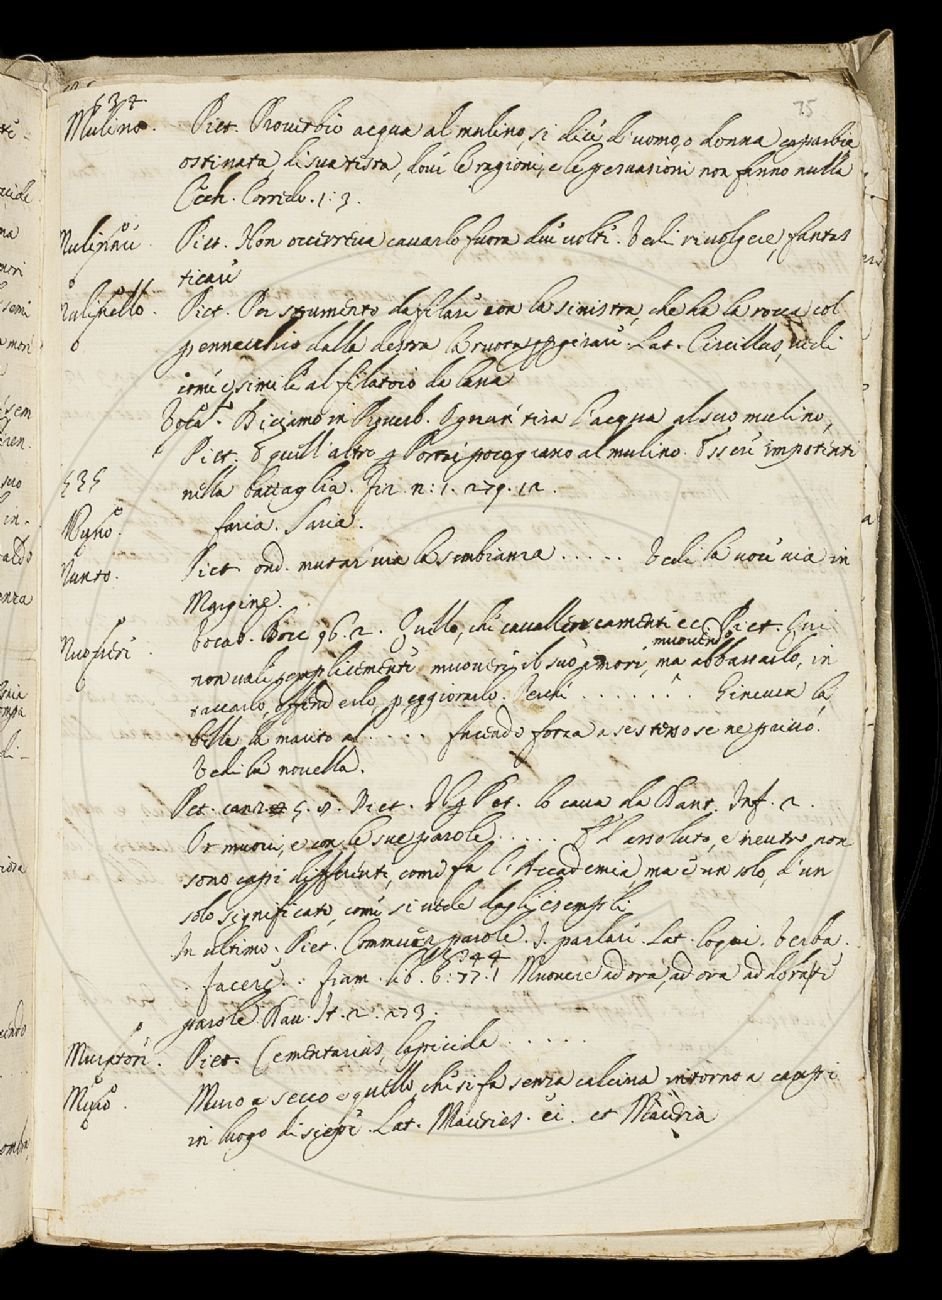 75
534
Mulino. Piet. Proverbio acqua al mulino, si dice d'uomo, o donna caparbia
ostinata, di sua testa, dove le ragioni, e le persuasioni non fanno nulla
Cech. Corredo. 1: 3.
Mulinare. Piet. Non occorreva cavarlo fuora due volte. Vedi rivolgere, fantas
ticare
Mulinello. Piet. Per strumento da filare con la sinistra, che ha la rocca col
pennecchio dalla destra la ruota girare. Lat. Circillus, vedi
come è simile al filatoio da lana
Voca. Diciamo in Proverb. Ognun tira l'acqua al suo mulino,
Piet. E quell'altro Portar poco grano al mulino. Essere impotente
535 nella battaglia. Fir. n: 1. 279. 12.
faria. Saria.
Munto. Piet. ond. mutar via la sembianza ..... Vedi la voce via in
Margine.
Vocab. Bocc. 96. 2. Quello, che cavallerescamente ec Piet. Qui
non vale semplicemente muovere il suo amore, muovendo ma abbassarlo, in
taccarlo, offenderlo, peggiorarlo. Perchè ....... Ginevra la
bella la marito al .... facendo forza a se stesso se ne privò.
Vedi la novella.
Pet. canz. 5. 8. Piet. Pet. lo cava da Dant. Inf. 2.
Or muovi, e con le sue parole ..... E l'assoluto, e neutro non
sono capi differenti, come fa l'Accademia ma è un solo, d'un
solo significato, come si vede dagli esempli
In ultimo. Piet. Commuover parole. I. parlare. Lat. loqui. Verba.
facere. : fiam. lib. 6: 77. 1 Muovere ad ora, ad ora
parole Dav. St. 2. 273.
Muratore. Piet. Cementarius, lapicida ......
Muro. Muro a secco è quello che si fa senza calcina intorno a campi
in luogo di siepe Lat. Maceries. ei. et Maceria